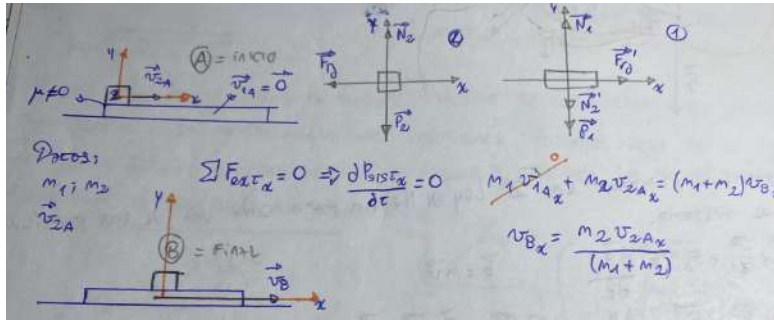 Y
Ⓐ = inicio
v⃗2A
v⃗1A = 0⃗
μ≠0
2
x
Y
N⃗2
②
F⃗D
x
P⃗2
Y
N⃗1
①
F⃗D'
x
N⃗2'
P⃗1
Datos:
m1; m2
v⃗2A
ΣFextx = 0 ⇒ dPsistx/dt = 0
m1 v1Ax + m2 v2Ax = (m1+m2) vBx
0
vBx = m2 v2Ax / (m1+m2)
Y
Ⓑ = Final
v⃗B
x